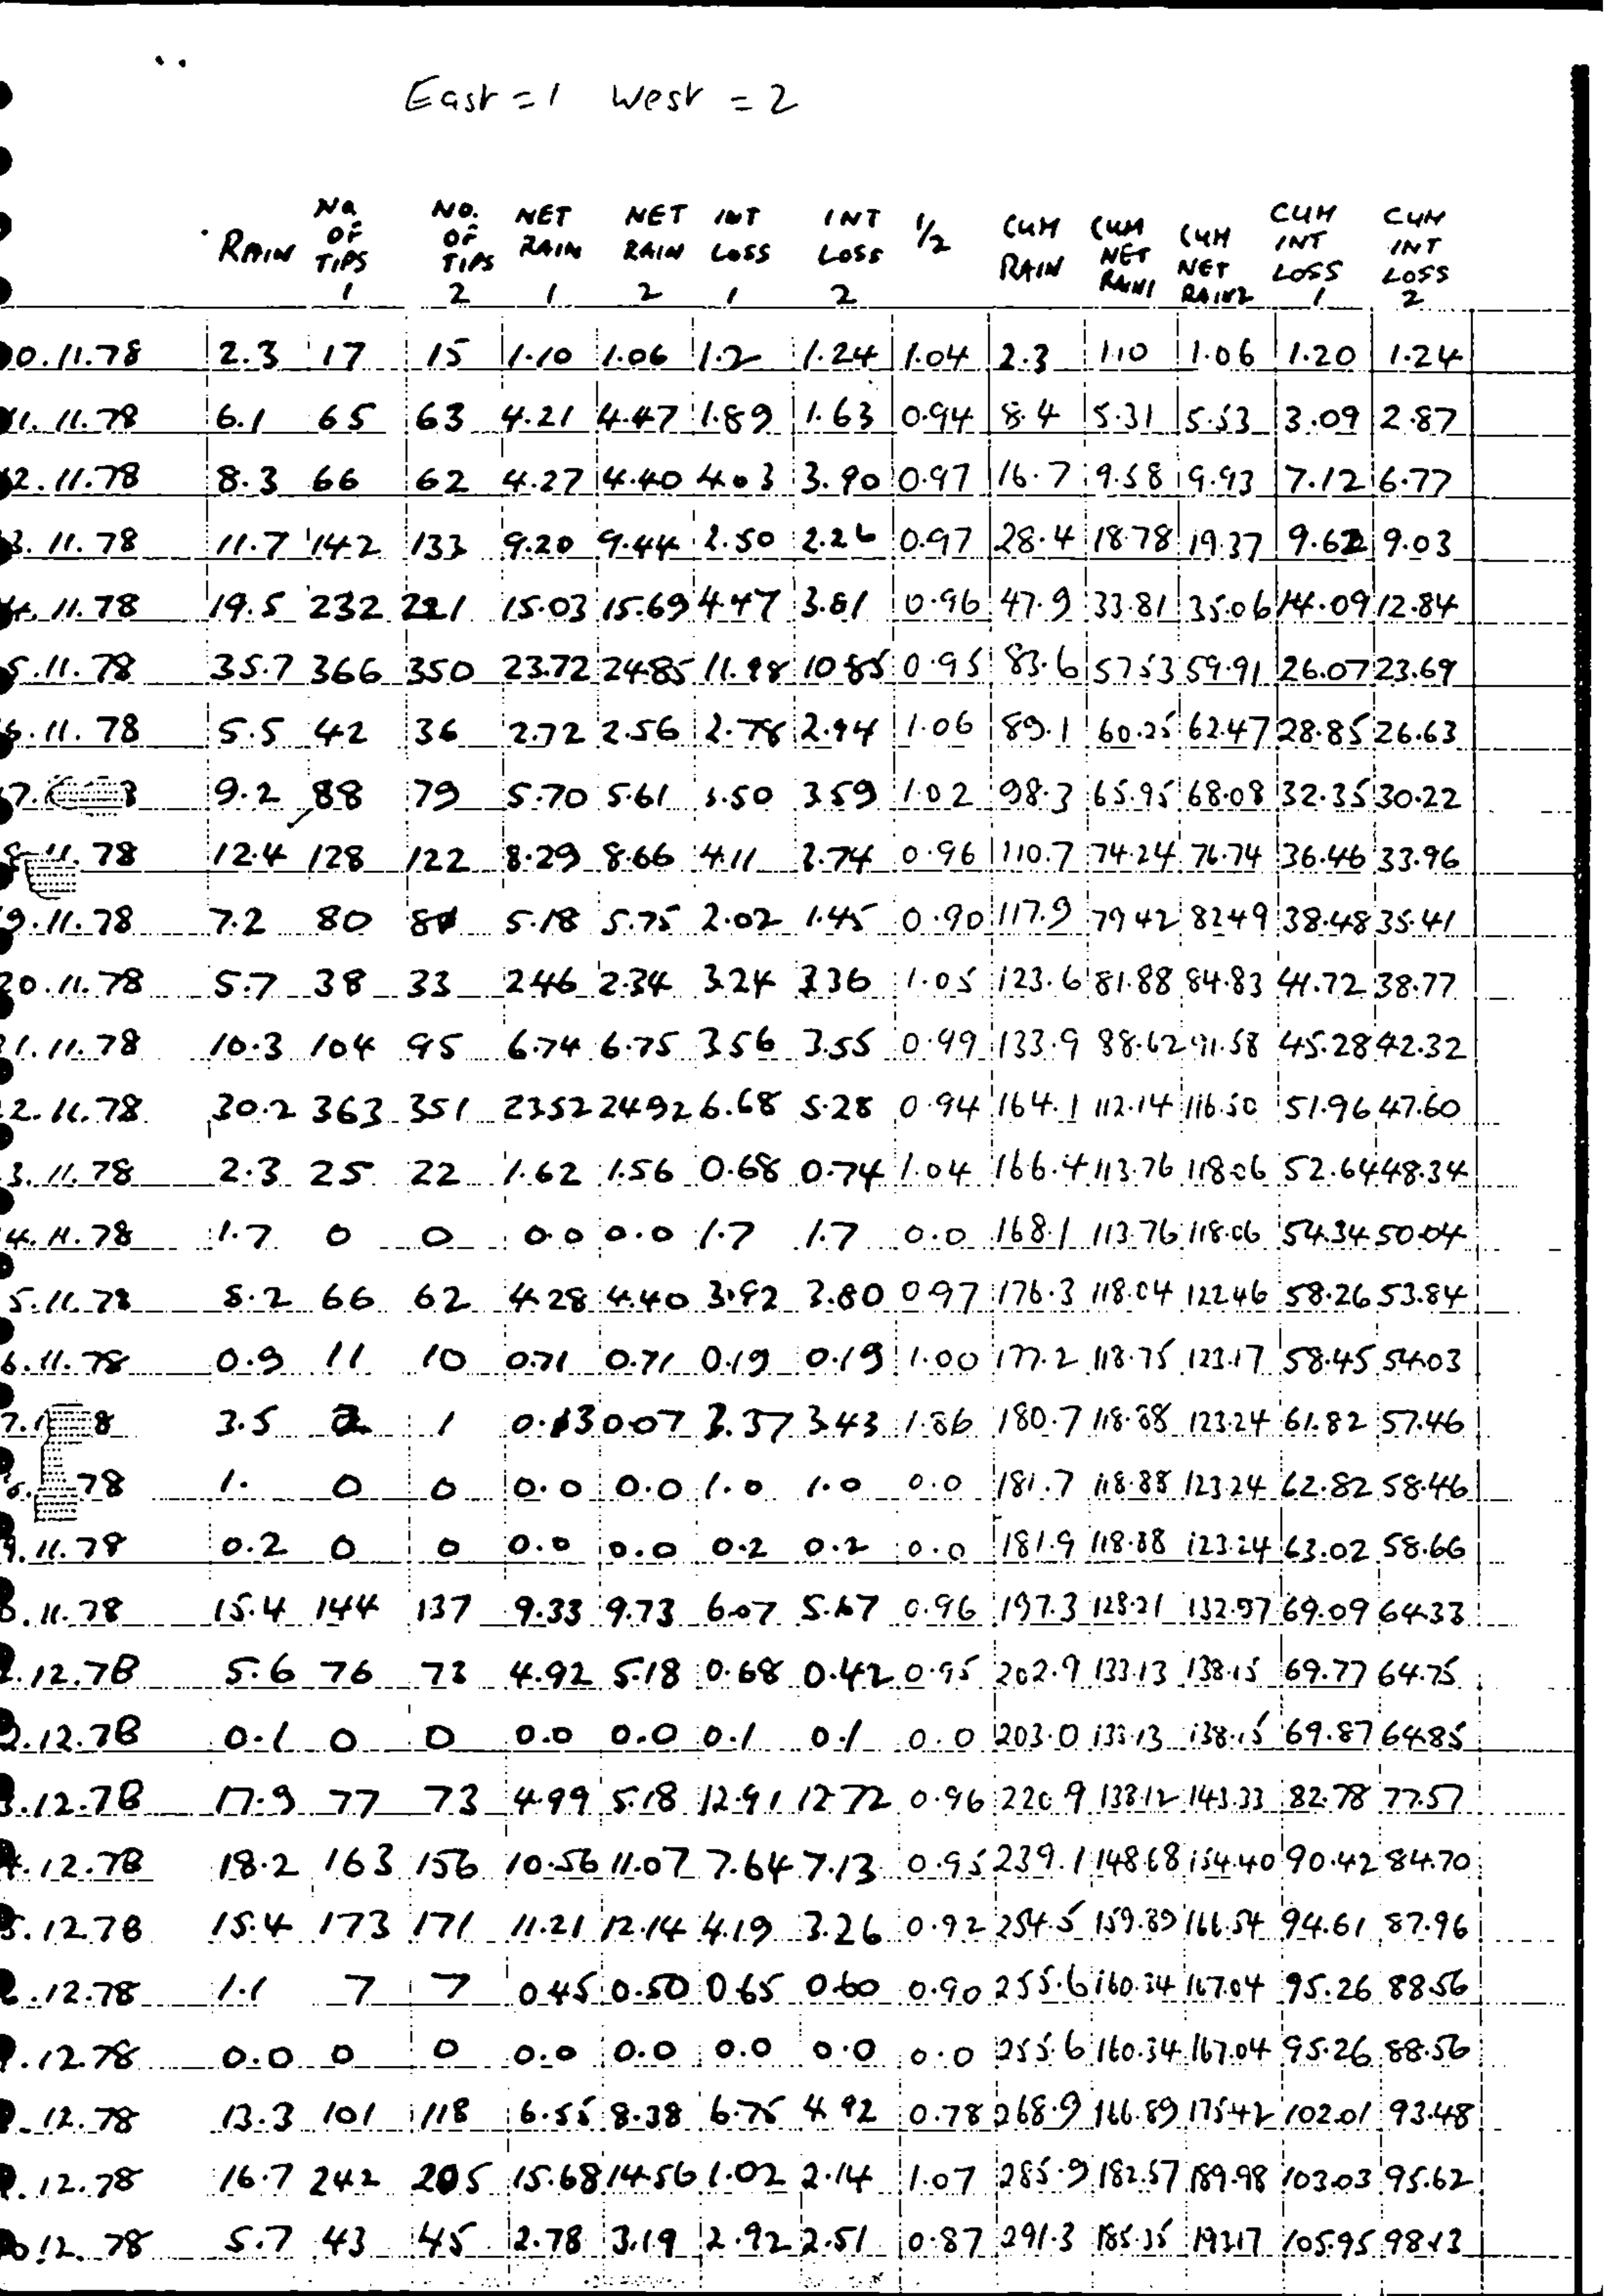 East = 1 West = 2
RAIN No. OF TIPS 1 NO. OF TIPS 2 NET RAIN 1 NET RAIN 2 INT LOSS 1 INT LOSS 2 1/2 CUM RAIN CUM NET RAIN1 CUM NET RAIN2 CUM INT LOSS 1 CUM INT LOSS 2
0.11.78 2.3 17 15 1.10 1.06 1.2 1.24 1.04 2.3 1.10 1.06 1.20 1.24
1.11.78 6.1 65 63 4.21 4.47 1.89 1.63 0.94 8.4 5.31 5.53 3.09 2.87
2.11.78 8.3 66 62 4.27 4.40 4.03 3.90 0.97 16.7 9.58 9.93 7.12 6.77
3.11.78 11.7 142 133 9.20 9.44 2.50 2.26 0.97 28.4 18.78 19.37 9.62 9.03
4.11.78 19.5 232 221 15.03 15.69 4.47 3.81 0.96 47.9 33.81 35.06 14.09 12.84
5.11.78 35.7 366 350 23.72 24.85 11.98 10.85 0.95 83.6 57.53 59.91 26.07 23.69
6.11.78 5.5 42 36 2.72 2.56 2.78 2.94 1.06 89.1 60.25 62.47 28.85 26.63
7. 8 9.2 88 79 5.70 5.61 3.50 3.59 1.02 98.3 65.95 68.08 32.35 30.22
8.11.78 12.4 128 122 8.29 8.66 4.11 3.74 0.96 110.7 74.24 76.74 36.46 33.96
9.11.78 7.2 80 81 5.18 5.75 2.02 1.45 0.90 117.9 79.42 82.49 38.48 35.41
20.11.78 5.7 38 33 2.46 2.34 3.24 3.36 1.05 123.6 81.88 84.83 41.72 38.77
1.11.78 10.3 104 95 6.74 6.75 3.56 3.55 0.99 133.9 88.62 91.58 45.28 42.32
2.11.78 30.2 363 351 23.52 24.92 6.68 5.28 0.94 164.1 112.14 116.50 51.96 47.60
3.11.78 2.3 25 22 1.62 1.56 0.68 0.74 1.04 166.4 113.76 118.06 52.64 48.34
4.11.78 1.7 0 0 0.0 0.0 1.7 1.7 0.0 168.1 113.76 118.06 54.34 50.04
5.11.78 8.2 66 62 4.28 4.40 3.92 3.80 0.97 176.3 118.04 122.46 58.26 53.84
6.11.78 0.9 11 10 0.71 0.71 0.19 0.19 1.00 177.2 118.75 123.17 58.45 54.03
7.1 8 3.5 2 1 0.13 0.07 3.37 3.43 1.86 180.7 118.88 123.24 61.82 57.46
78 1. 0 0 0.0 0.0 1.0 1.0 0.0 181.7 118.88 123.24 62.82 58.46
9.11.78 0.2 0 0 0.0 0.0 0.2 0.2 0.0 181.9 118.88 123.24 63.02 58.66
0.11.78 15.4 144 137 9.33 9.73 6.07 5.67 0.96 197.3 128.21 132.97 69.09 64.33
.12.78 5.6 76 73 4.92 5.18 0.68 0.42 0.95 202.9 133.13 138.15 69.77 64.75
2.12.78 0.1 0 0 0.0 0.0 0.1 0.1 0.0 203.0 133.13 138.15 69.87 64.85
3.12.78 17.9 77 73 4.99 5.18 12.91 12.72 0.96 220.9 138.12 143.33 82.78 77.57
4.12.78 18.2 163 156 10.56 11.07 7.64 7.13 0.95 239.1 148.68 154.40 90.42 84.70
5.12.78 15.4 173 171 11.21 12.14 4.19 3.26 0.92 254.5 159.89 166.54 94.61 87.96
6.12.78 1.1 7 7 0.45 0.50 0.65 0.60 0.90 255.6 160.34 167.04 95.26 88.56
.12.78 0.0 0 0 0.0 0.0 0.0 0.0 0.0 255.6 160.34 167.04 95.26 88.56
.12.78 13.3 101 118 6.55 8.38 6.75 4.92 0.78 268.9 166.89 175.42 102.01 93.48
.12.78 16.7 242 205 15.68 14.56 1.02 2.14 1.07 285.9 182.57 189.98 103.03 95.62
0.12.78 5.7 43 45 2.78 3.19 2.92 2.51 0.87 291.3 185.35 193.17 105.95 98.13